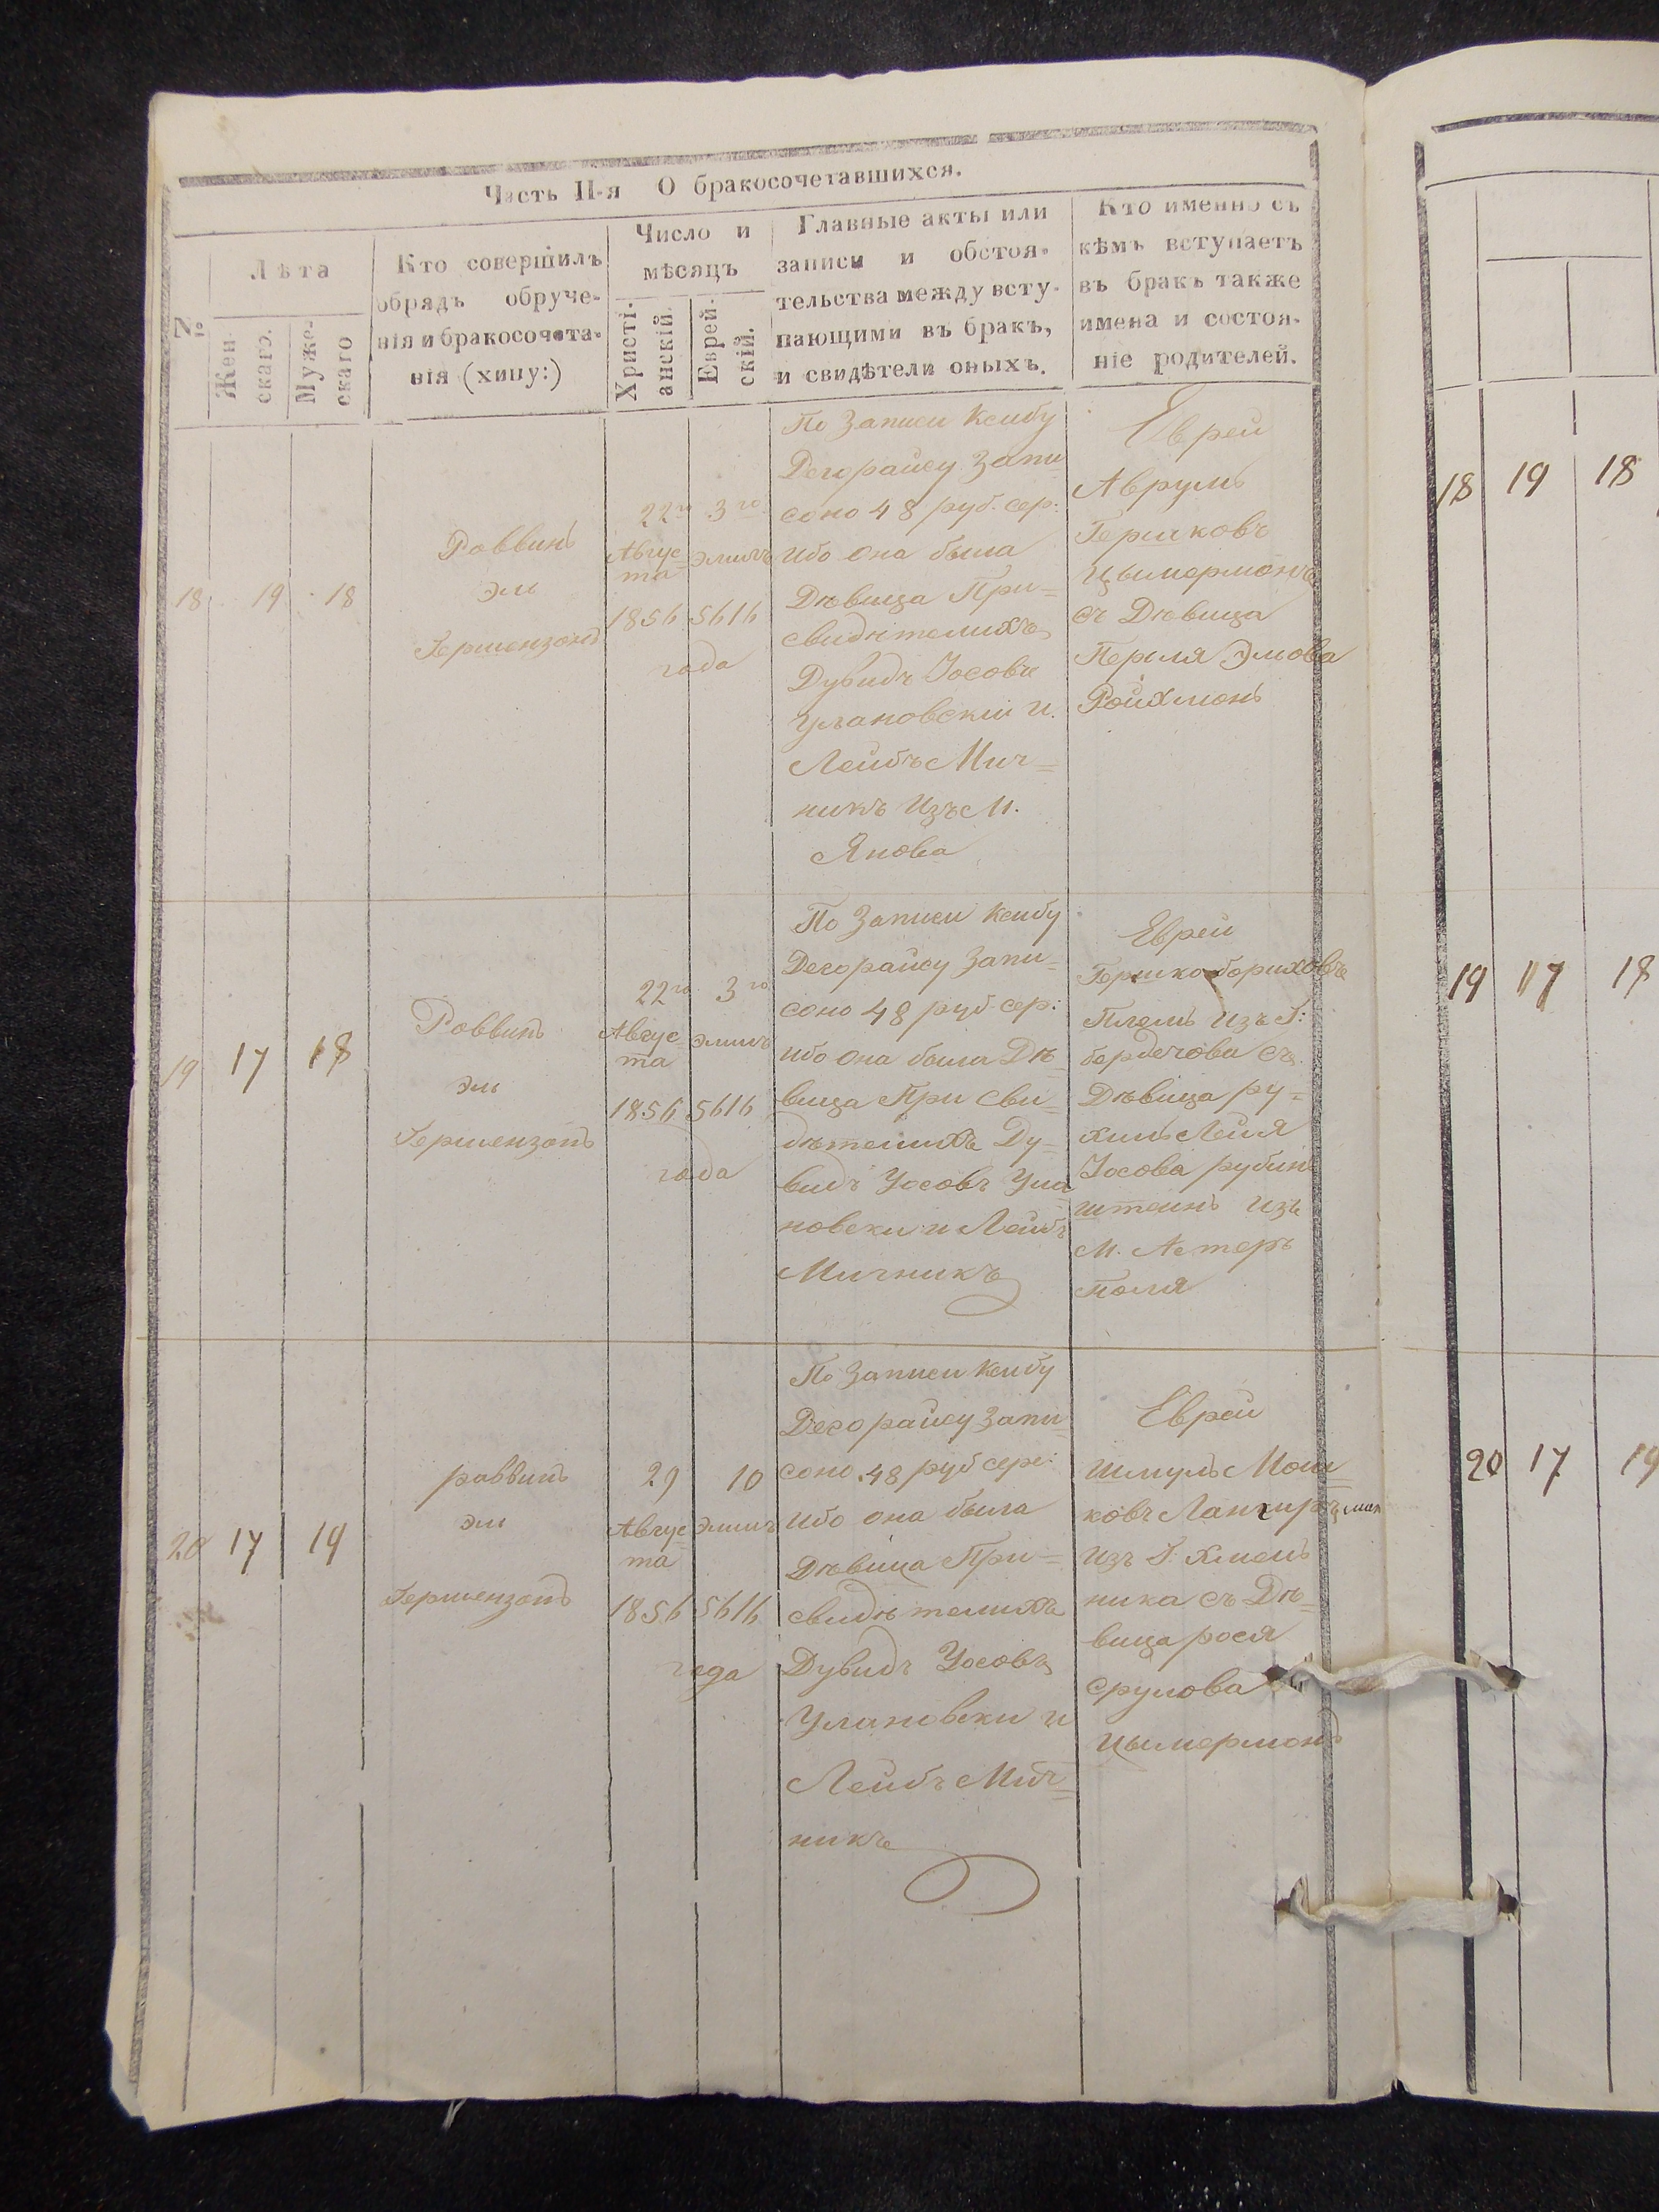 Часть II-я О бракосочетавшихся.
№
Лѣта
Жен-
скаго.
Муже-
скаго
Кто совершилъ
обрядъ обруче-
нія и бракосочета-
нія (хипу:)
Число и
мѣсяцъ
Христі-
анскій.
Еврей-
скій.
Главные акты или
записи и обстоя-
тельства между всту-
пающими въ бракъ,
и свидѣтели оныхъ.
Кто именно съ
кѣмъ вступаетъ
въ бракъ также
имена и состоя-
ніе родителей.
18 19 18
Раввинъ
эль
Гершензонъ
22го
Авгус=
та
1856
3го
элилъ
5616
года
По Записи Ксибу
Дегорайсу Запи
соно 48 руб. сер:
ибо она была
Дѣвица При=
свидѣтелихъ
Дувидъ Іосовъ
Улановскій и
Лейбъ Мич=
никъ изъ М.
Янова
Еврей
Аврумъ
Гершковъ
Цымермонъ
съ Дѣвица
Перля Эльова
Ройхмонъ
19 17 18
Раввинъ
эль
Гершензонъ
22го
Авгус=
та
1856
3го
элилъ
5616
года
По Записи Ксибу
Дегорайсу Запи=
соно 48 руб сер:
ибо она была Дѣ
вица При Сви=
дѣтелихъ Ду=
видъ Усовъ Ула
новски и Лейбъ
Мичникъ
Еврей
Гершко бориховъ
изъ Г:
бердечова съ
Дѣвица ру=
хиль Лейя
Іосова рубин
штеинъ изъ
М. Летеръ
поля
20 17 19
раввинъ
эль
Гершензонъ
29
Авгус=
та
1856
10
элилъ
5616
года
По Записи Ксибу
Дегорайсу Запи=
соно 48 руб сере:
ибо она была
Дѣвица При=
свидѣтелихъ
Дувидъ Усовъ
Улановски и
Лейбъ Мич=
никъ
Еврей
Шмуль Мош=
ковъ
изъ Г. Хмель
ника съ Дѣ=
вица рося
Срулова
Цымермонъ
18 19 18
19 17 18
20 17 19